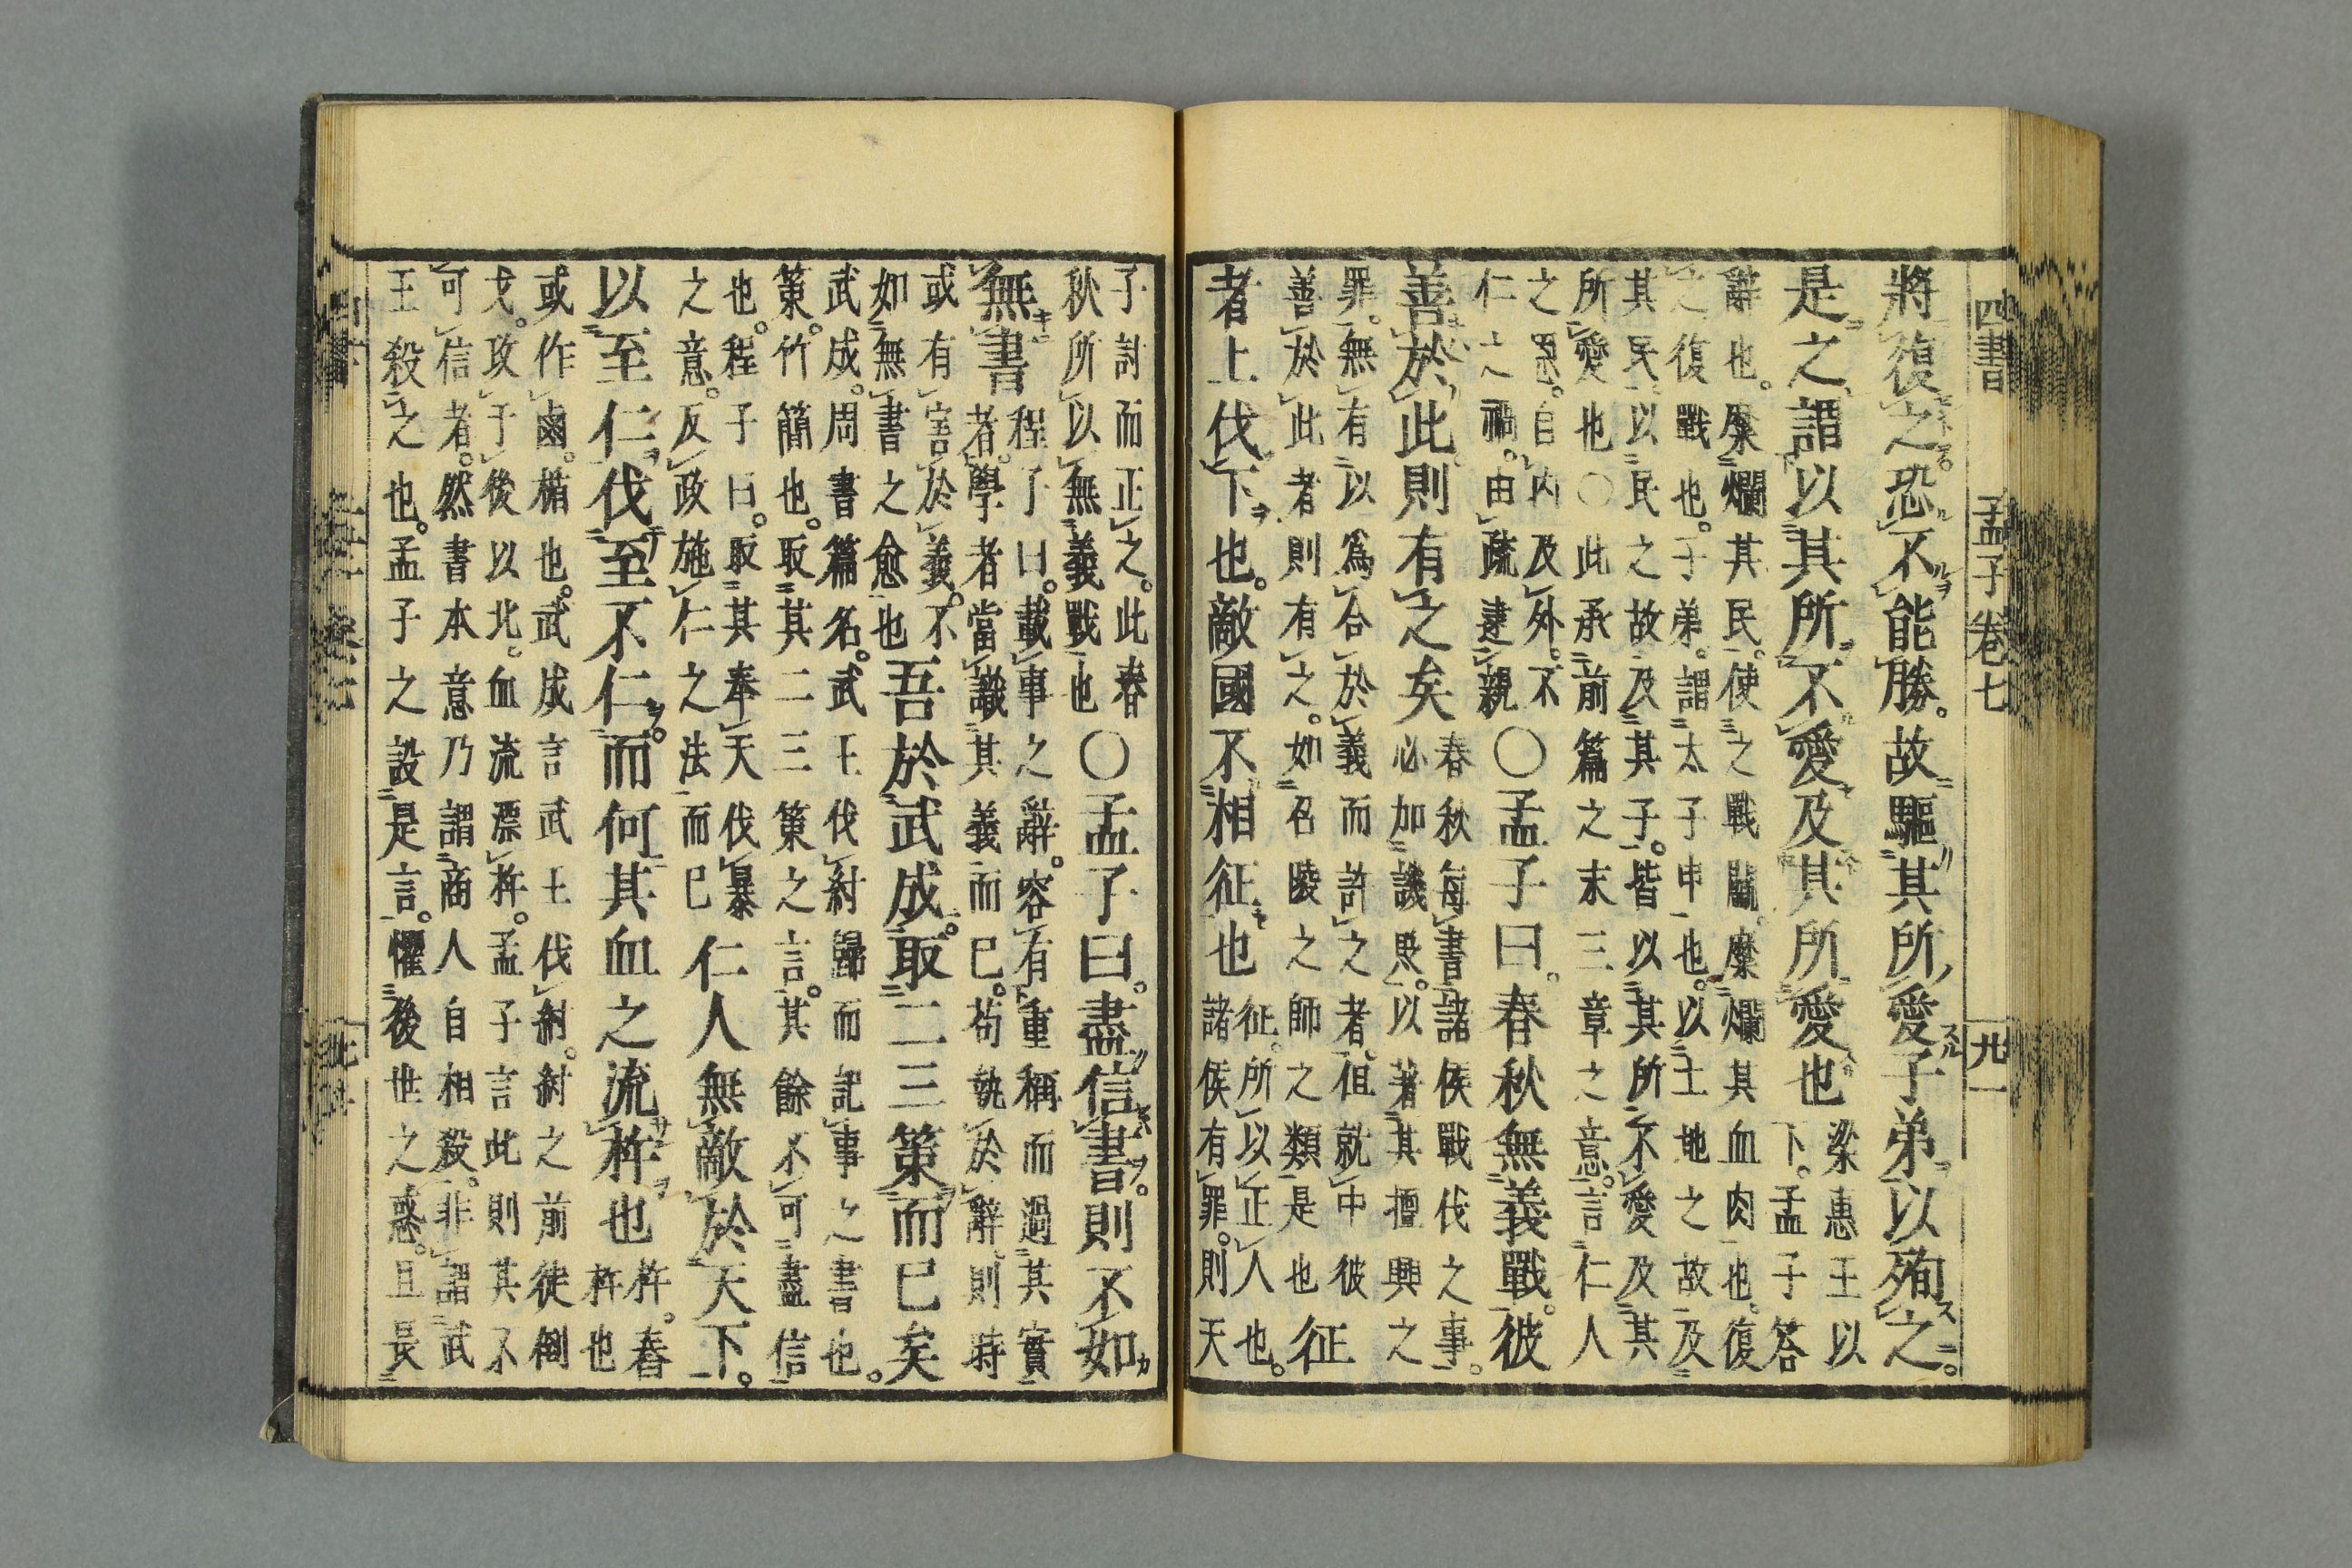 四書 孟子卷七 九一
將復之恐不能勝。故驅其所愛子弟以殉之。
是之謂以其所不愛及其所愛也
梁惠王以
下。孟子答
辭也。糜爛其民。使之戰鬬。糜爛其血肉也。復
之復戰也。子弟。謂太子申也。以土地之故及
其民。以民之故及其子。皆以其所不愛及其
所愛也○此承前篇之末三章之意。言仁人
之恩。自內及外。不
仁之禍。由疏逮親
○孟子曰。春秋無義戰。彼
善於此則有之矣
春秋每書諸侯戰伐之事。
必加譏貶。以著其擅興之
罪。無有以爲合於義而許之者。但就中彼
善於此者則有之。如召陵之師之類是也
征
者上伐下也。敵國不相征也
征。所以正人也。
諸侯有罪。則天
子討而正之。此春
秋所以無義戰也
○孟子曰。盡信書。則不如
無書
程子曰。載事之辭。容有重稱而過其實
者。學者當識其義而已。苟執於辭。則時
或有害於義。不
如無書之愈也
吾於武成。取二三策而已矣
武成。周書篇名。武王伐紂歸而記事之書也。
策。竹簡也。取其二三策之言。其餘不可盡信
也。程子曰。取其奉天伐暴
之意。反政施仁之法而已
仁人無敵於天下。
以至仁伐至不仁。而何其血之流杵也
杵。舂
杵也
或作鹵。楯也。武成言武王伐紂。紂之前徒倒
戈。攻于後以北。血流漂杵。孟子言此則其不
可信者。然書本意乃謂商人自相殺。非謂武
王殺之也。孟子之設是言。懼後世之惑。且長